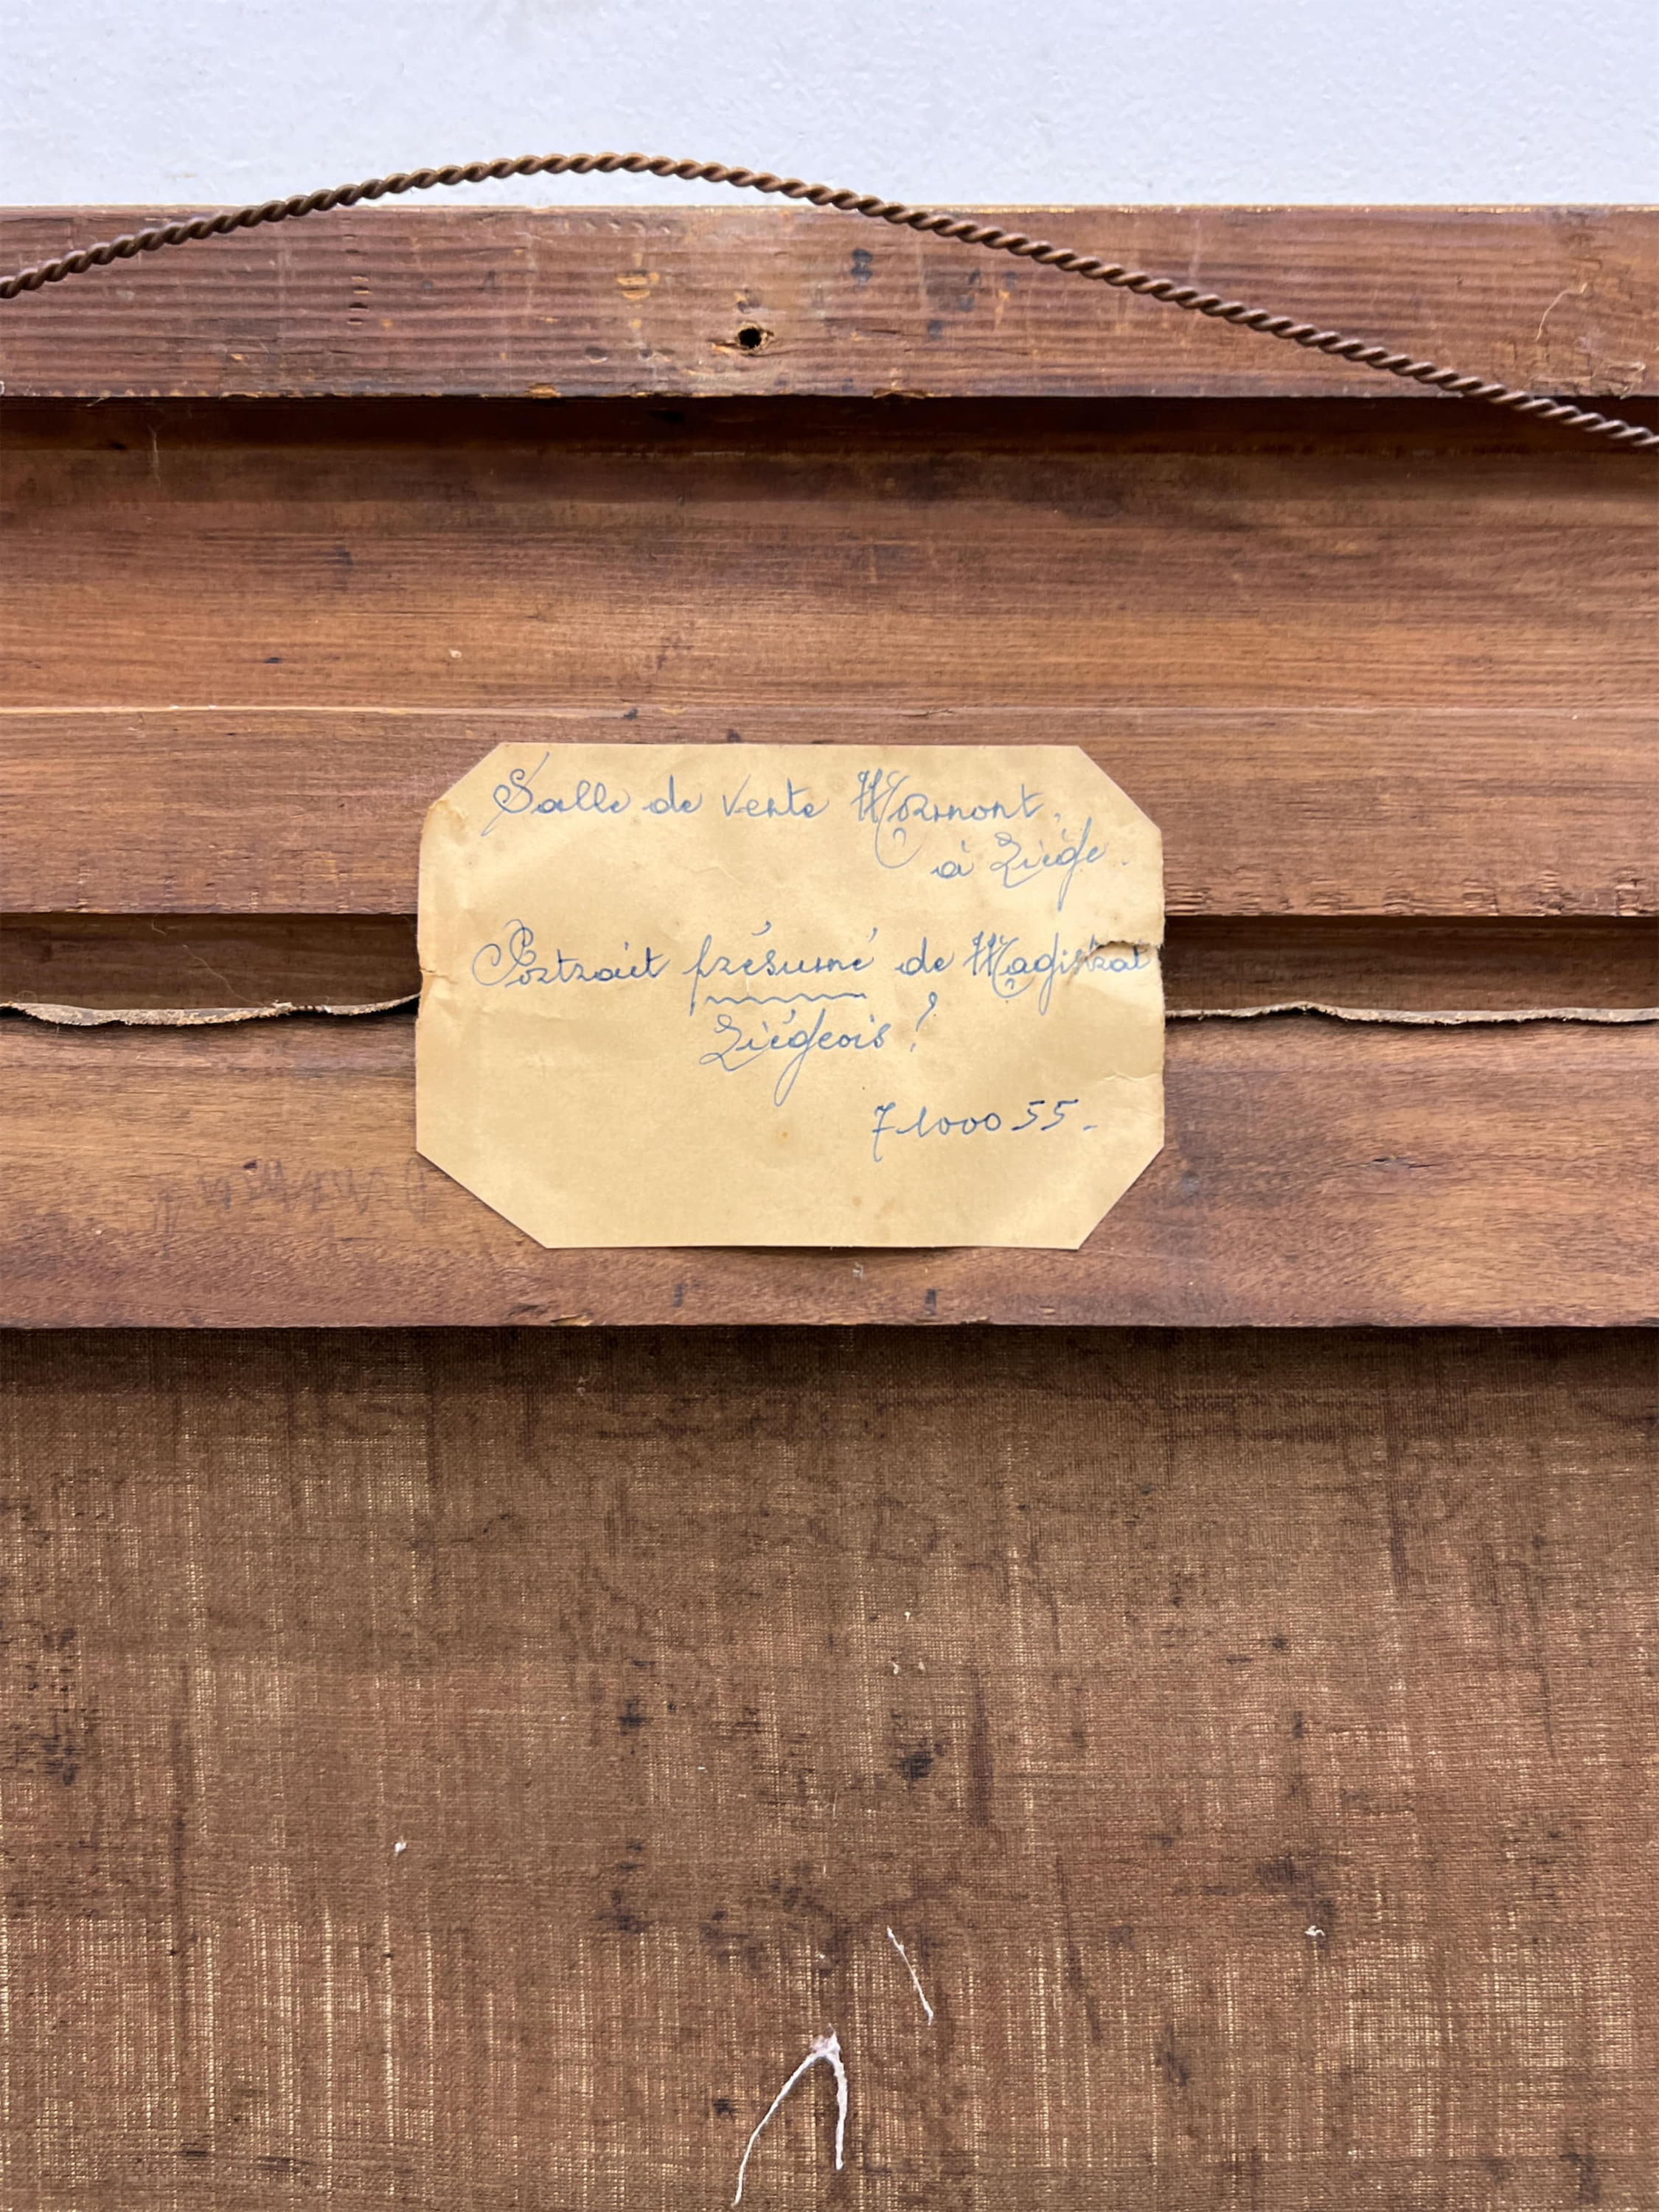 Salle de vente Mormont,
à Liége.
Portrait présumé de Magistrat
Liégeois?
71000 55.-